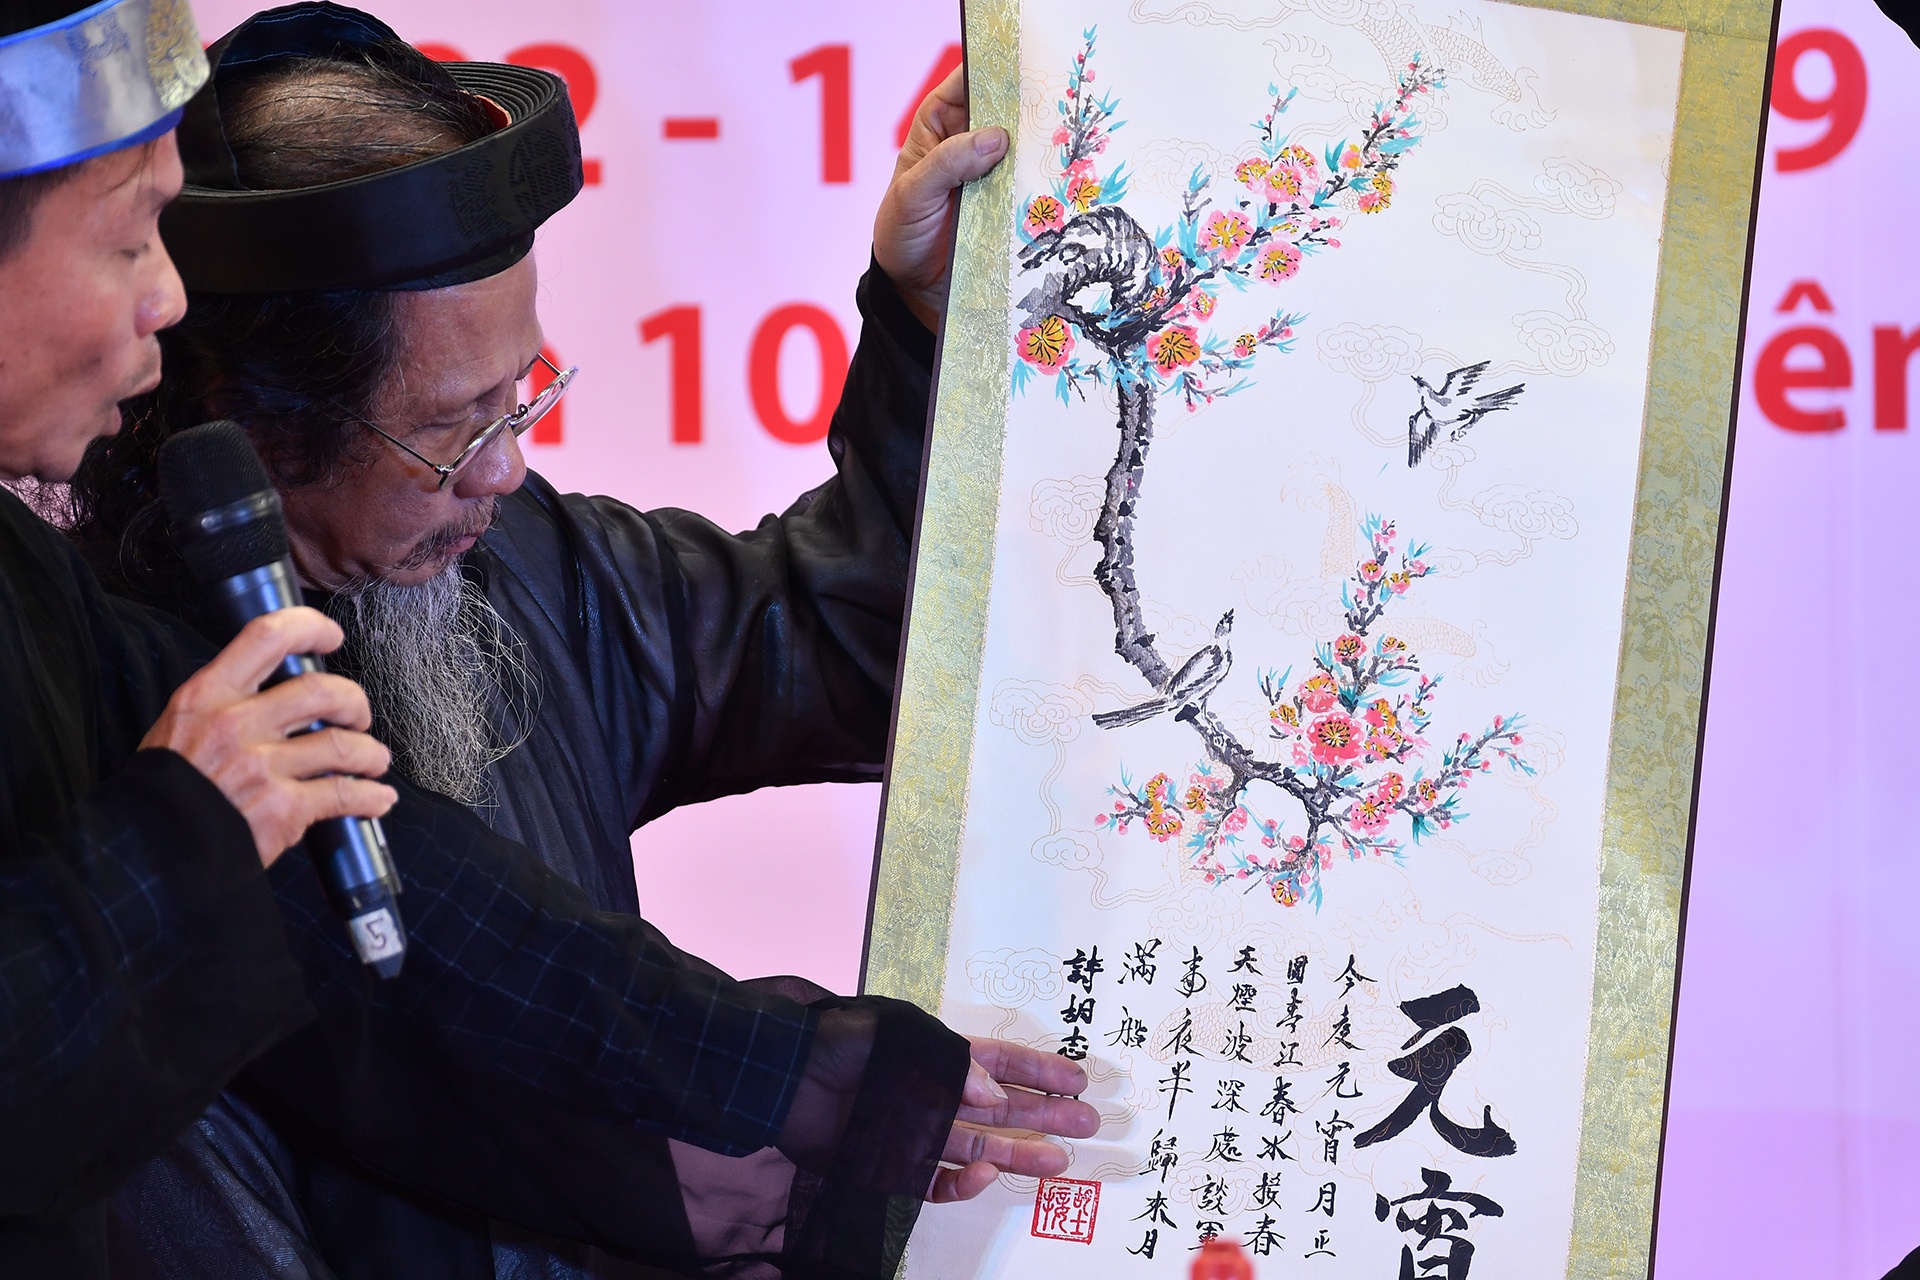 2 - 14
9
10
ên
元宵
今夜元宵月正
圓春江春水接春
天煙波深處談軍
事夜半歸來月
滿船
詩胡志
胡士接
5